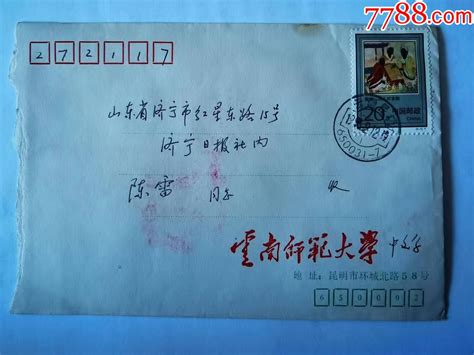 7788.com
272117
20
中国邮政
CHINA
650031-7
山东省济宁市红星东路15号
济宁日报社内
陈雷 同志 收
云南师范大学 中文系
地址：昆明市环城北路58号
650092